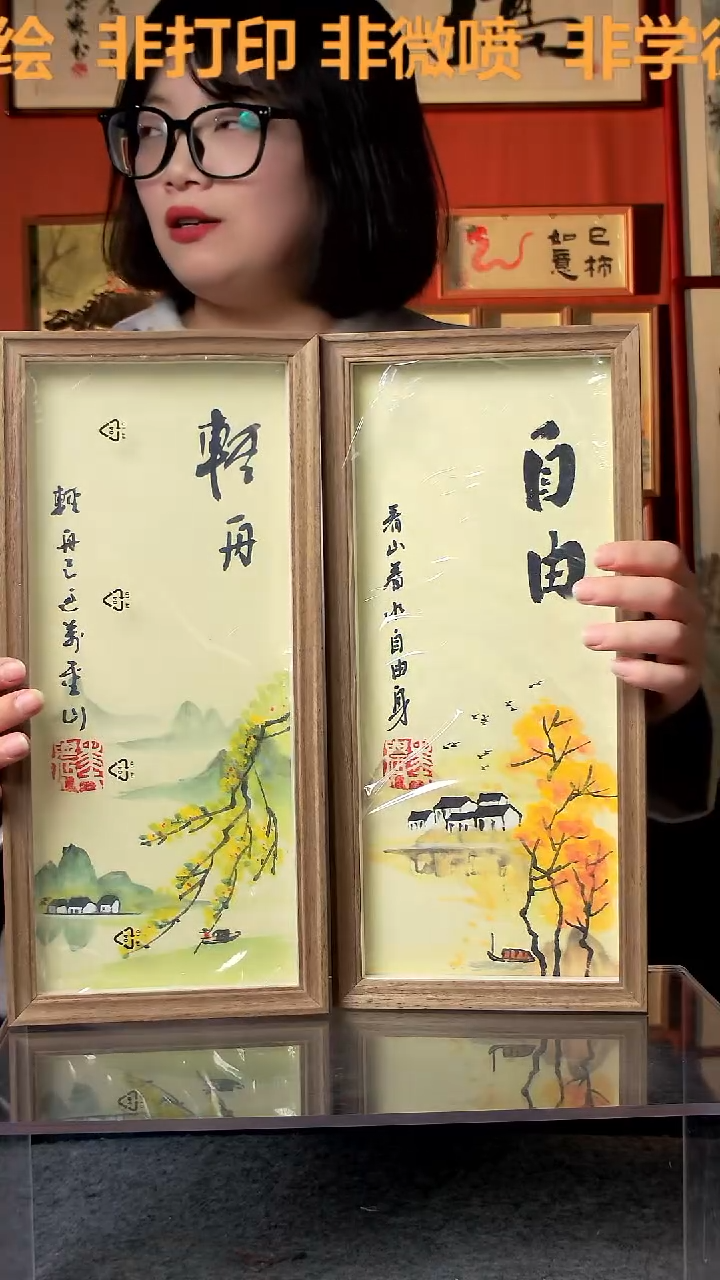 绘 非打印 非微喷 非学
如意
巳柿
輕舟
輕舟已過萬重山
自由
看山看水自由身